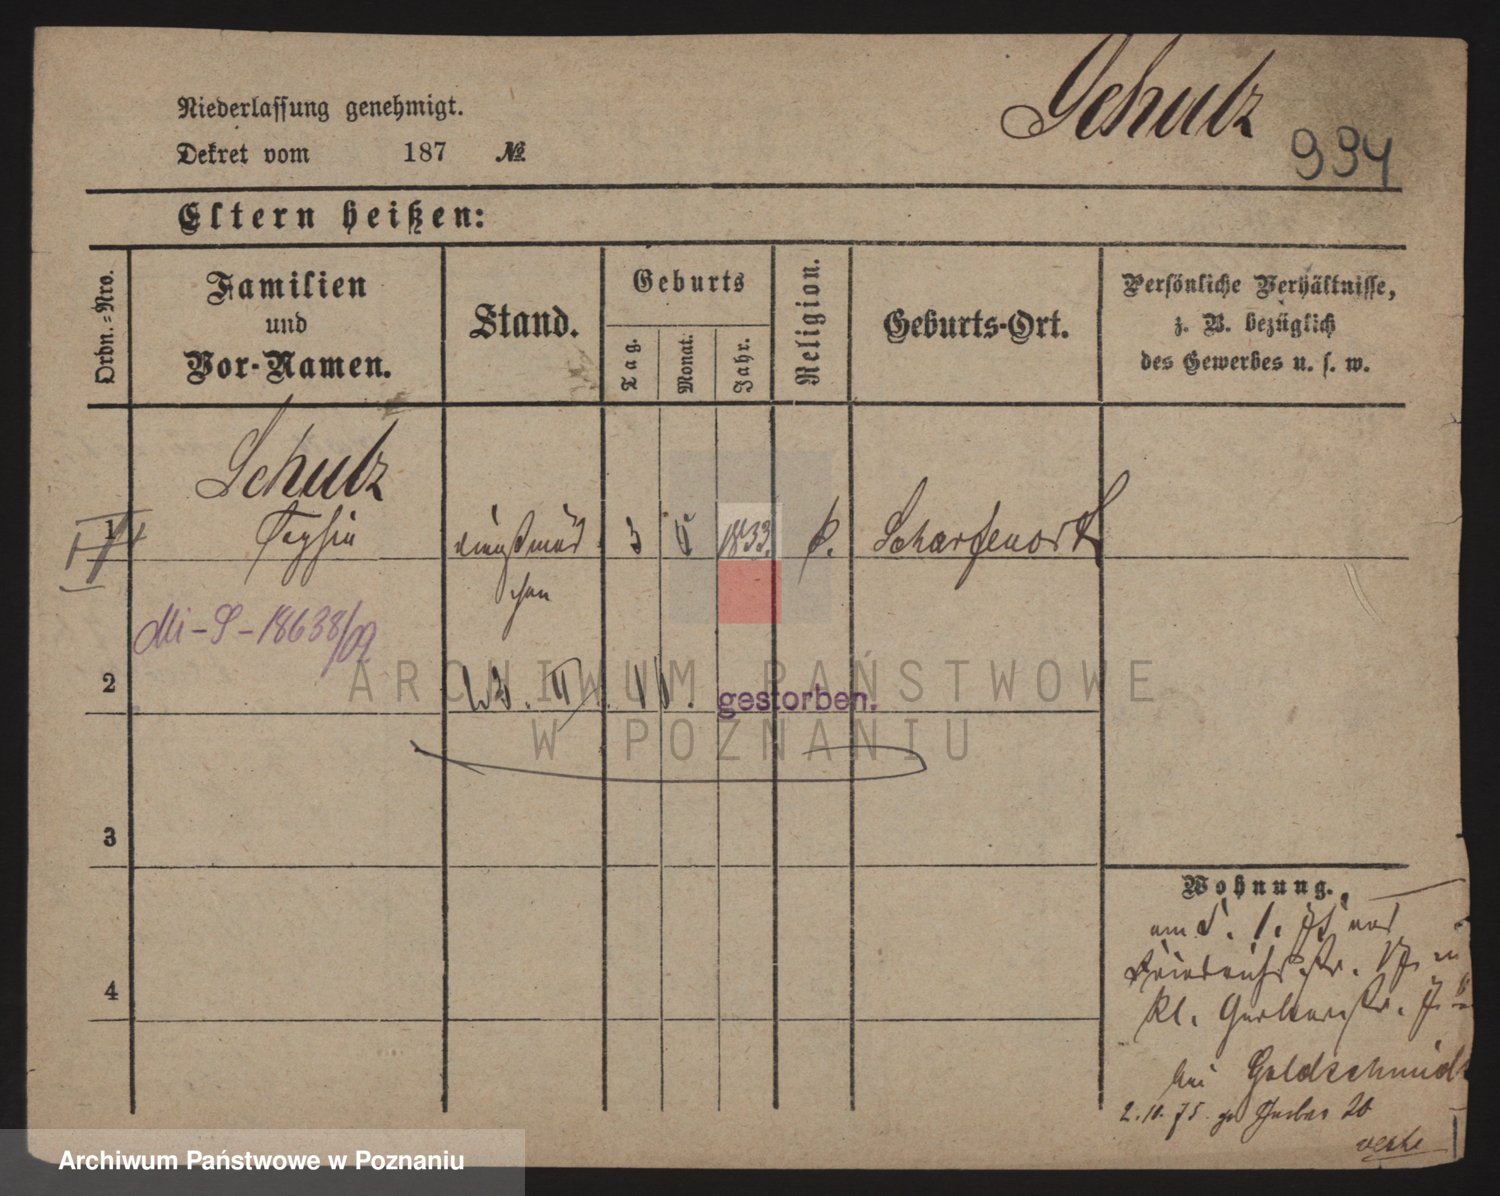 Schulz
934
Niederlassung genehmigt.
Dekret vom 187 №
Eltern heißen:
Ordn.-Nro.
Familien
und
Vor-Namen.
Stand.
Geburts
Tag.
Monat.
Jahr.
Religion.
Geburts-Ort.
Persönliche Verhältnisse,
z. B. bezüglich
des Gewerbes u. s. w.
Schulz
1 3 1833. Scharfenort
Mi-S-18638/09
2 gestorben.
3
4
Wohnung.
Friedrichsstr. 17
kl. Gerberstr. 7
bei Goldschmidt
2.10.75
ARCHIWUM PAŃSTWOWE
W POZNANIU
Archiwum Państwowe w Poznaniu